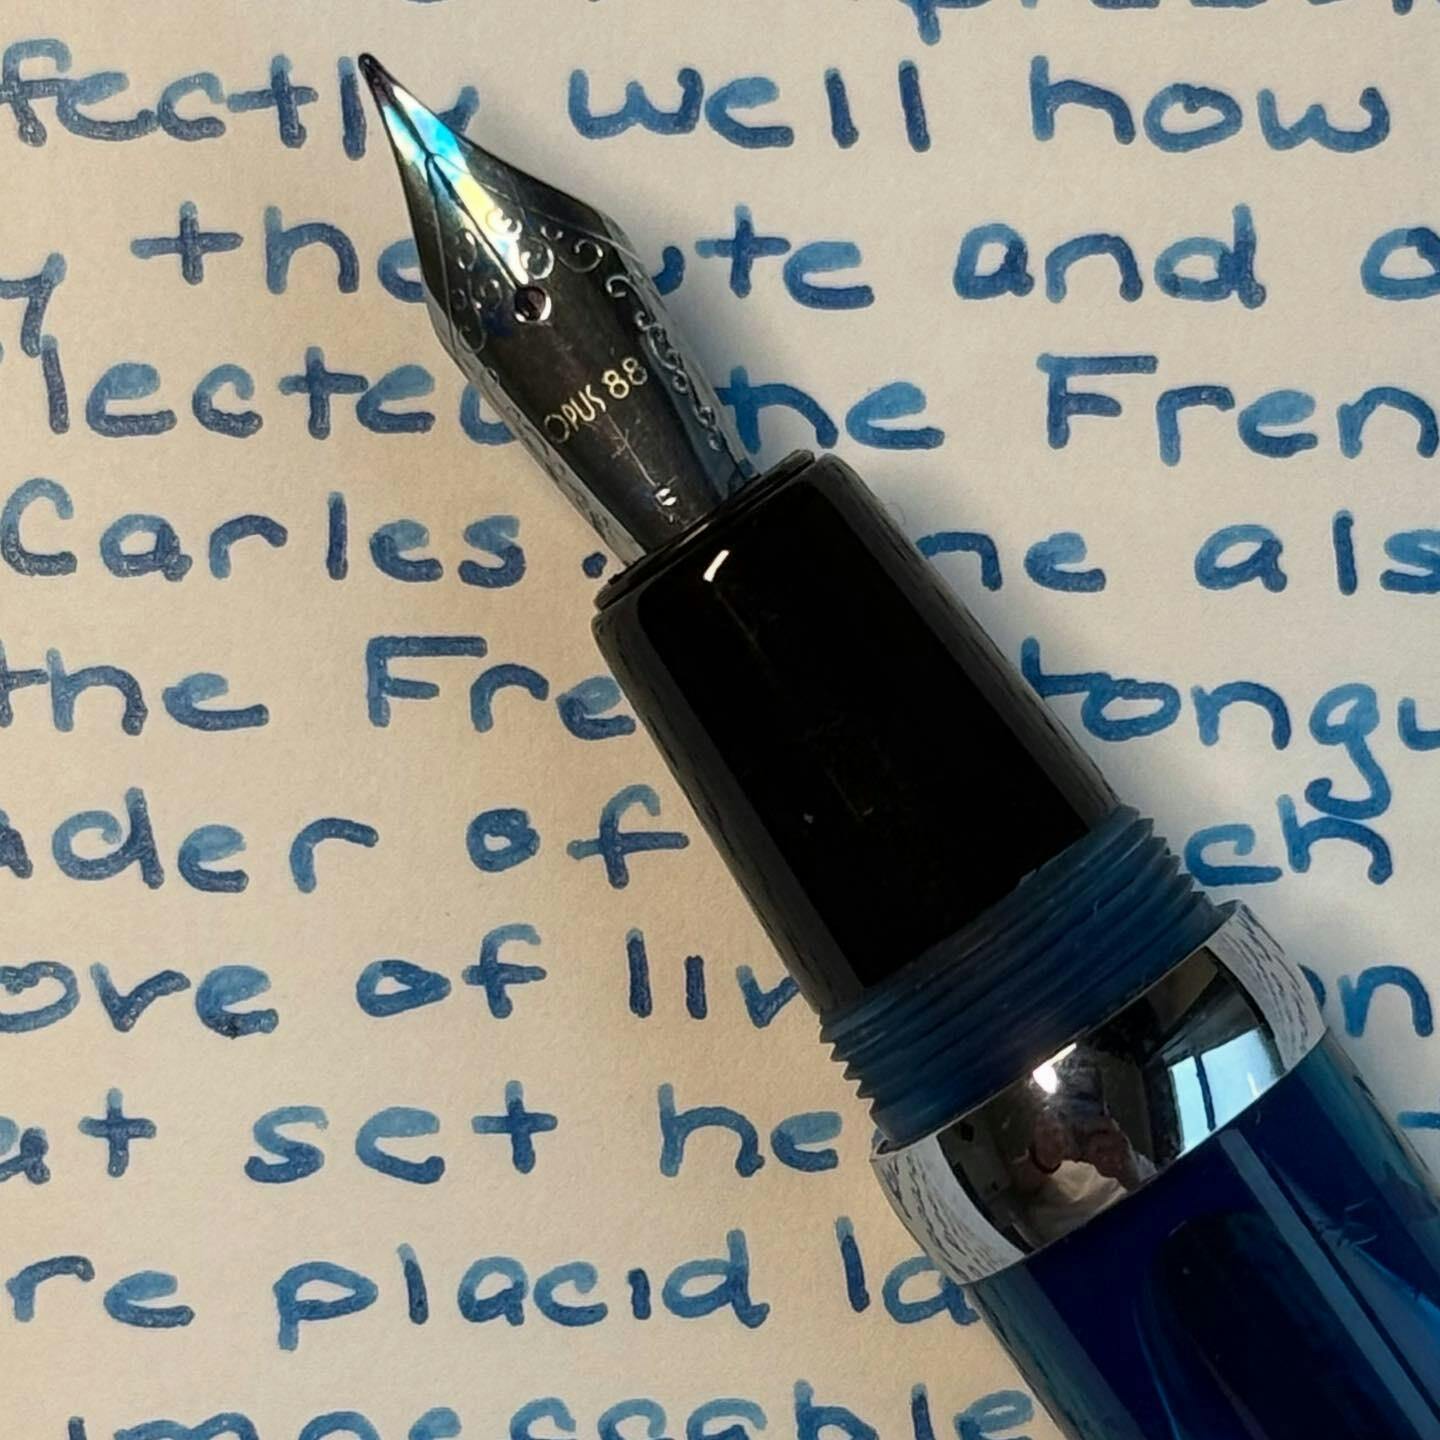 fectly well how
y the ute and
lected he Fren
Carles. ne als
the Fre tongu
ader of ch
ove of liv on
at set he
re placid la
impeccable
OPUS 88
F